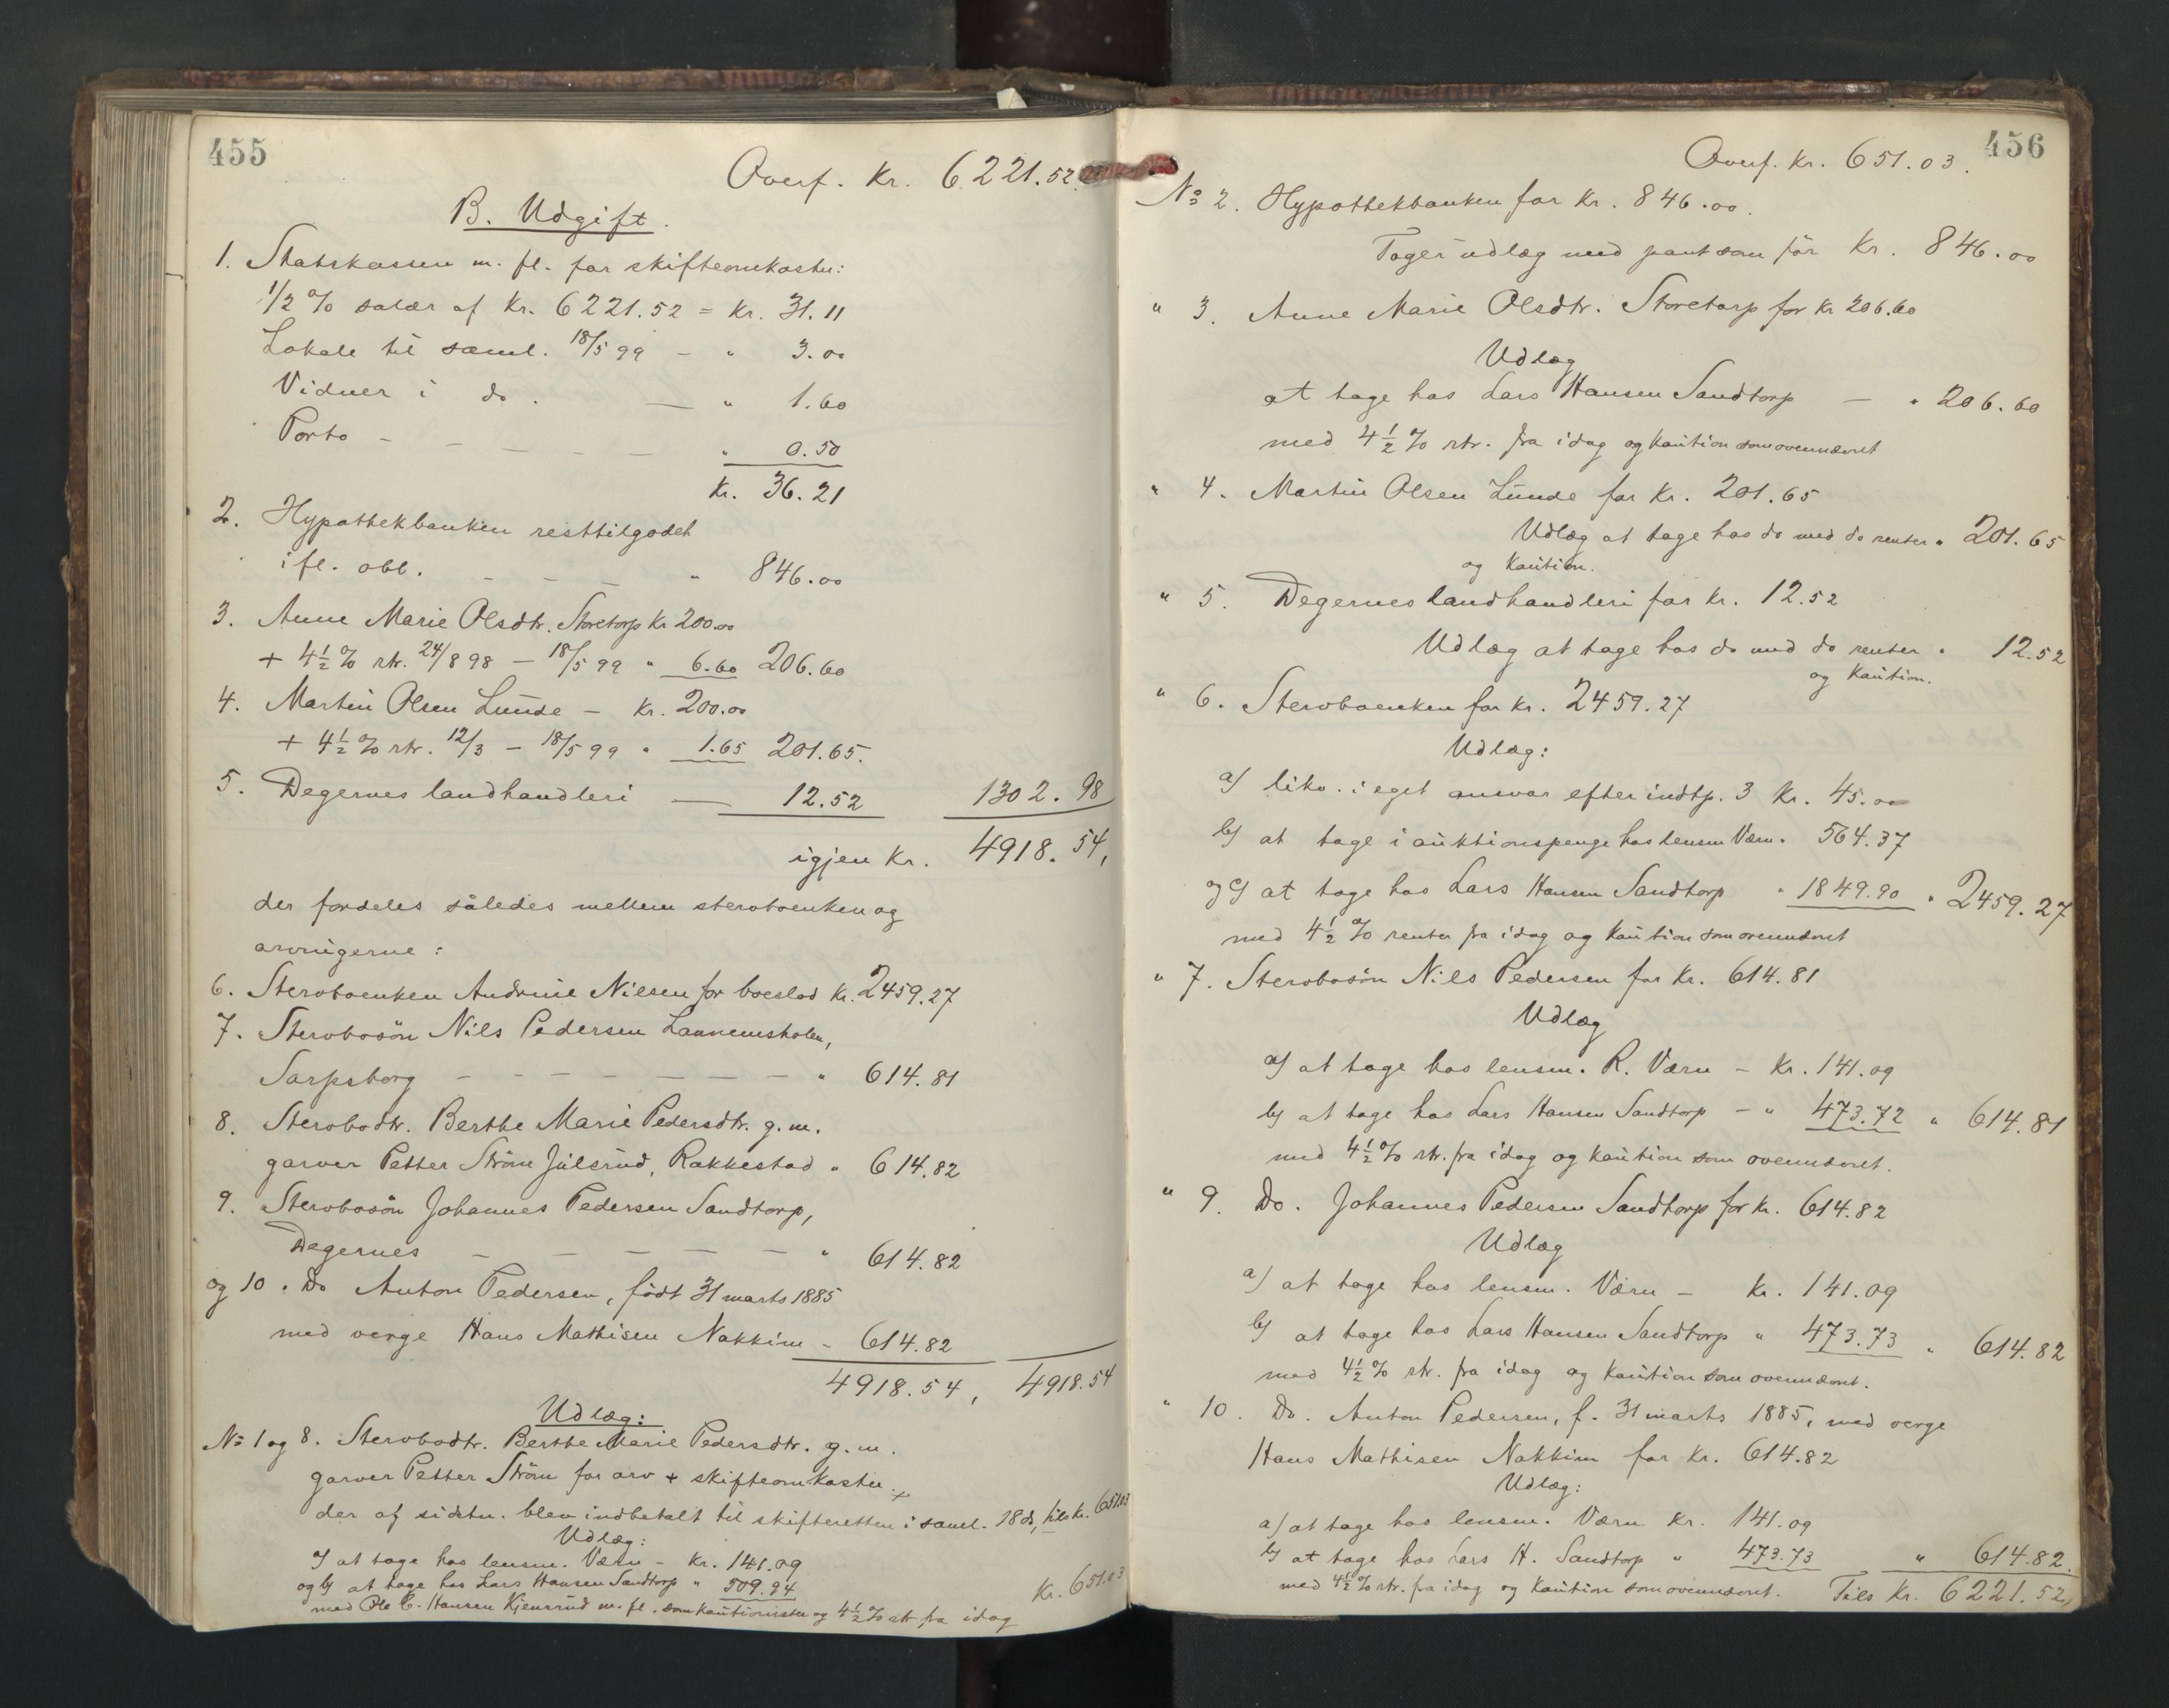 455
Overf. Kr. 6221.52
B. Udgift.
1. Statskassen m. fl. for skifteomkostn:
1/2 % salær af Kr. 6221.52 = Kr. 31.11
Lokale til saml. 18/5 99 — " 3.00
Vidner i do. — " 1.60
Porto - - - - — " 0.50
Kr. 36.21
2. Hypothekbanken resttilgodeh
ifl. obl. - - - " 846.00
3. Anne Marie Olsdtr. Storetorp Kr 200.00
+ 4 1/2 % rtr. 24/8 98 — 18/5 99 " 6.60 206.60
4. Martin Olsen Lunde — Kr. 200.00
+ 4 1/2 % rtr. 12/3 — 18/5 99 " 1.65 201.65.
5. Degernes landhandleri — 12.52 1302.98
igjen Kr. 4918.54,
der fordeles således mellem sterboenken og
arvingerne:
6. Sterboenken Andrine Nilsen for boeslod Kr. 2459.27
7. Sterbosön Nils Pedersen
Sarpsborg - - - - - - - " 614.81
8. Sterbodtr. Berthe Marie Pedersdtr. g. m.
garver Petter Ström Julsrud, Rakkestad " 614.82
9. Sterbosön Johannes Pedersen Sandtorp,
Degernes - - - - - " 614.82
og 10. Do Anton Pedersen, födt 31 marts 1885
med verge Hans Mathisen Nakkim - 614.82
4918.54, 4918.54
Udlæg:
No 1 og 8. Sterbodtr. Berthe Marie Pedersdtr. g. m.
garver Petter Ström for arv + skifteomkostn.
der af sidstn. blev indbetalt til skifteretten i saml. 18 ds, tils Kr. 651.03
Udlæg:
a) at tage hos lensm. Værn - Kr. 141.09
og b) at tage hos Lars Hansen Sandtorp " 509.94 Kr. 651.03
med Ole C. Hansen Kjensrud m. fl. som kautionister og 4 1/2 % rtr fra idag
456
Overf. Kr. 651.03.
No 2. Hypothekbanken for Kr. 846.00.
Tager udlæg med pant som för Kr. 846.00
" 3. Anne Marie Olsdtr. Storetorp for Kr 206.60
Udlæg
at tage hos Lars Hansen Sandtorp — " 206.60
med 4 1/2 % rtr. fra idag og kaution som ovennævnt
" 4. Martin Olsen Lunde for Kr. 201.65
Udlæg at tage hos do med do renter " 201.65
og kaution.
" 5. Degernes landhandleri for Kr. 12.52
Udlæg at tage hos do med do renter " 12.52
og kaution.
" 6. Sterboenken for Kr. 2459.27
Udlæg:
a) i eget ansvar efter indtp. 3 Kr. 45.00
b) at tage i auktionspenge hos lensm Værn. 564.37
og c) at tage hos Lars Hansen Sandtorp " 1849.90 " 2459.27
med 4 1/2 % renter fra idag og kaution som ovennævnt
" 7. Sterbosön Nils Pedersen for Kr. 614.81
Udlæg
a) at tage hos lensm. R. Værn - Kr. 141.09
b) at tage hos Lars Hansen Sandtorp - " 473.72 " 614.81
med 4 1/2 % rtr. fra idag og kaution som ovennævnt.
" 9. Do. Johannes Pedersen Sandtorp for Kr. 614.82
Udlæg
a) at tage hos lensm. Værn - Kr. 141.09
b) at tage hos Lars Hansen Sandtorp " 473.73 " 614.82
med 4 1/2 % rtr. fra idag og kaution som ovennævnt.
" 10. Do. Anton Pedersen, f. 31 marts 1885, med verge
Hans Mathisen Nakkim for Kr. 614.82
Udlæg:
a) at tage hos lensm. Værn Kr. 141.09
b) at tage hos Lars H. Sandtorp " 473.73 " 614.82.
med 4 1/2 % rtr. fra idag og kaution som ovennævnt. Tils Kr. 6221.52,